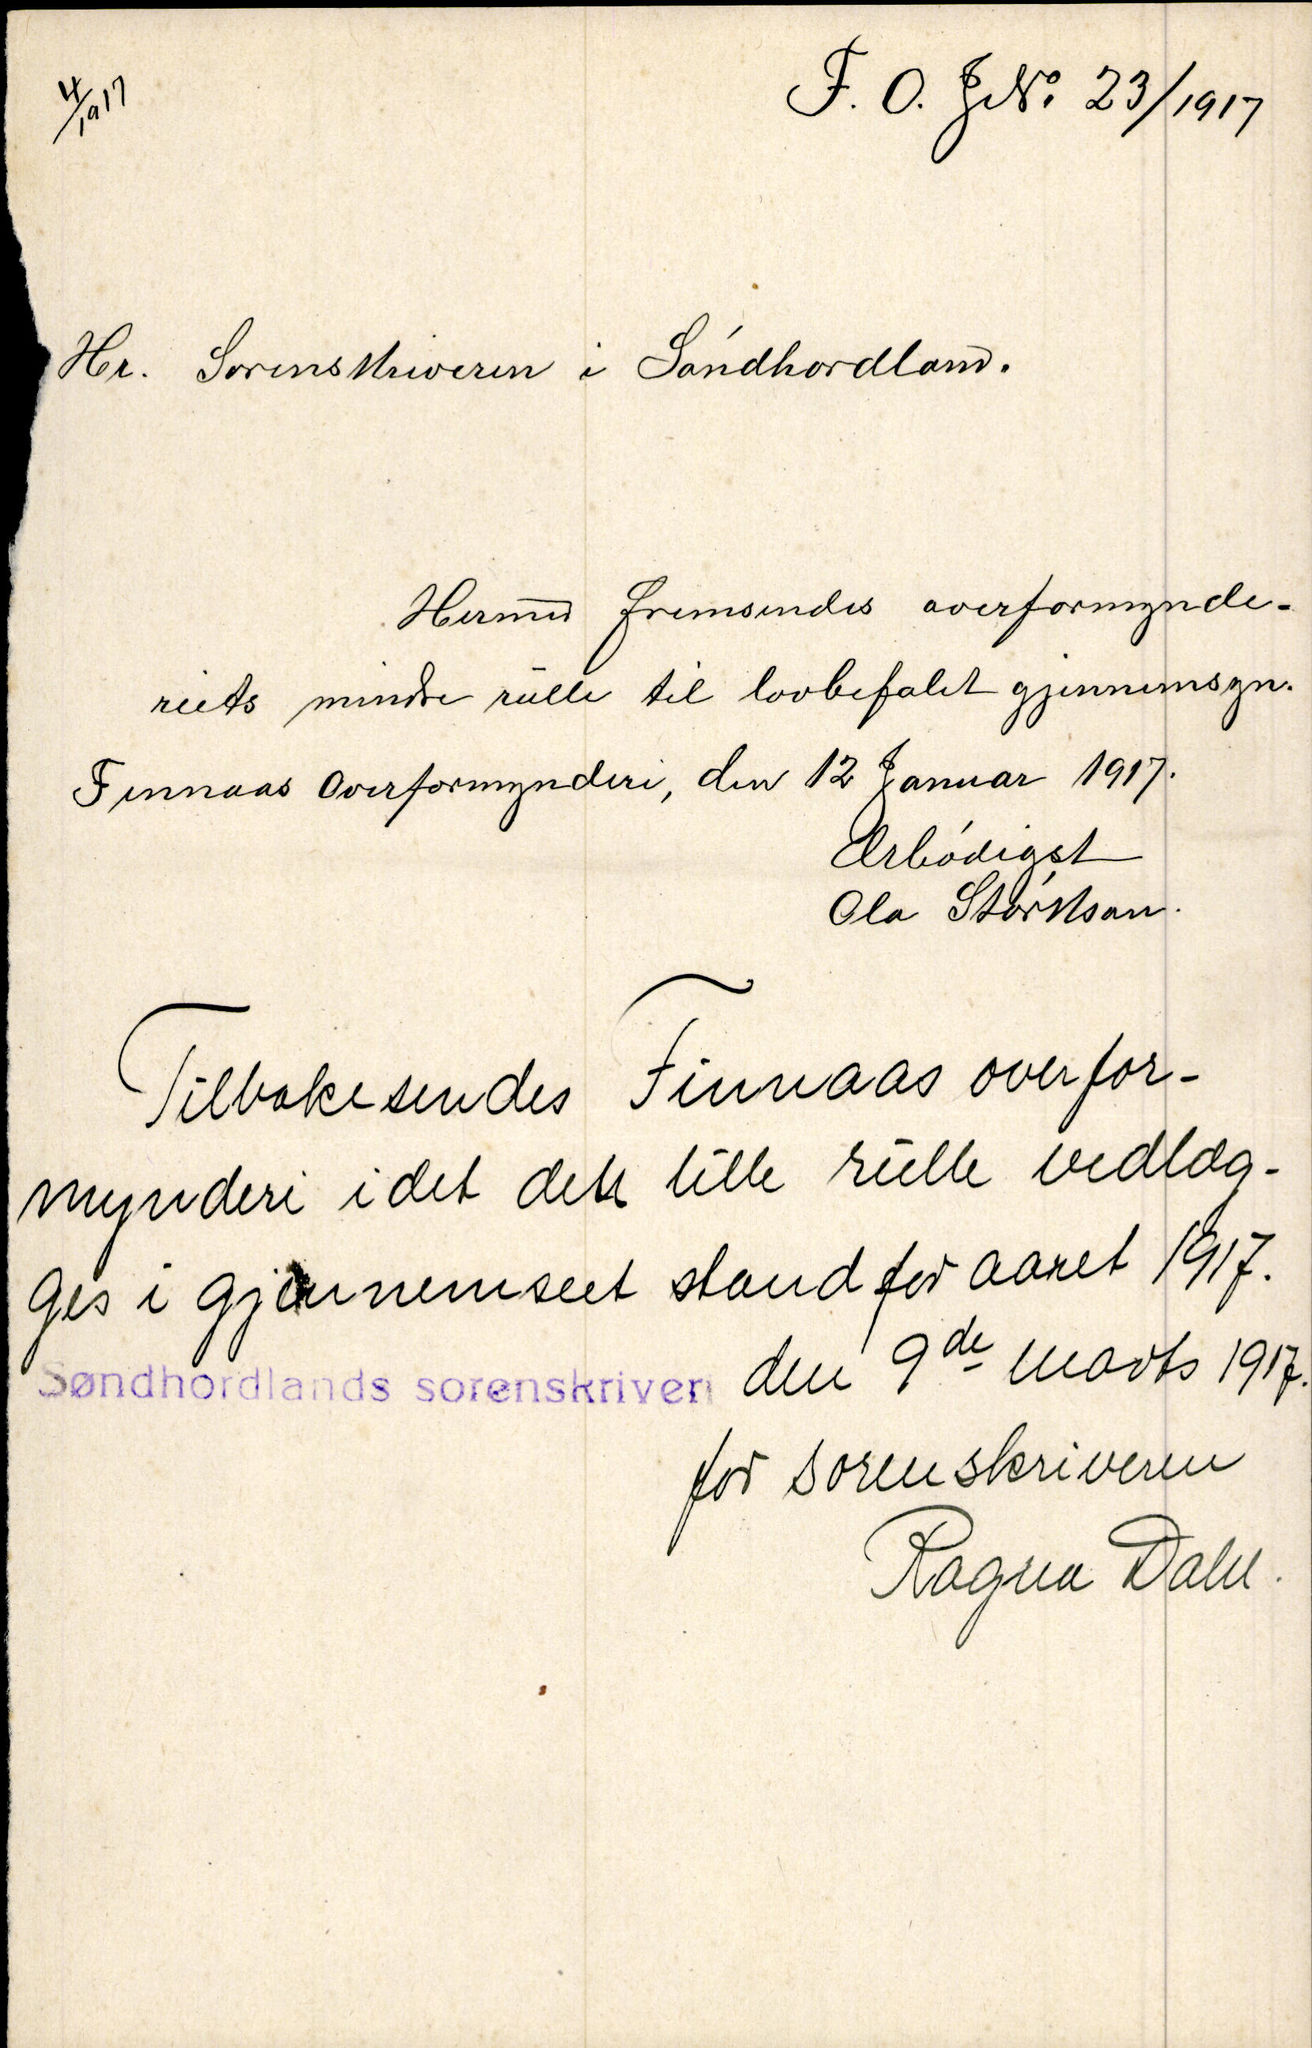 4/1917
F. O. J.No. 23/1917
Hr. Sorenskriveren i Söndhordland.
Hermed fremsendes overformynde-
riets mindre rulle til lovbefalet gjennemsyn.
Finnaas Overformynderi, den 12 Januar 1917.
Ærbödigst
Ola Störkson.
Tilbakesendes Finnaas overfor-
mynderi idet dets lille rulle vedlæg-
ges i gjennemseet stand for aaret 1917.
Søndhordlands sorenskriveri den 9de marts 1917.
for sorenskriveren
Ragna Dahl.